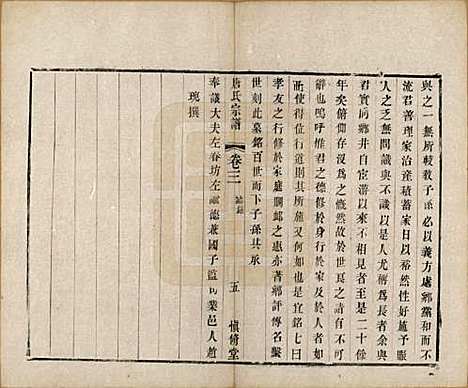 與之一無所棱教子孫必以義方處鄉黨和而不
流君善理家治產積蓄日以裕然性好施予賑
人之乏無問識與不識以是人尤稱爲長者余與
君實同鄉井自宦游以來不相見者至是二十餘
年矣俯仰存沒爲之慨然故於世良之請有不能
辭也嗚呼維君之德修於身行於家及於人者如
此使得位行道則其所施又何如也是宜銘七曰
孝友之行修於家庭賙卹之惠亦著鄉評傳名繫
世刻此墓銘百世而下子孫其承
唐氏宗譜
卷三
五
愼脩堂
奉議大夫左春坊左諭德兼國子監司業邑人趙
琬撰